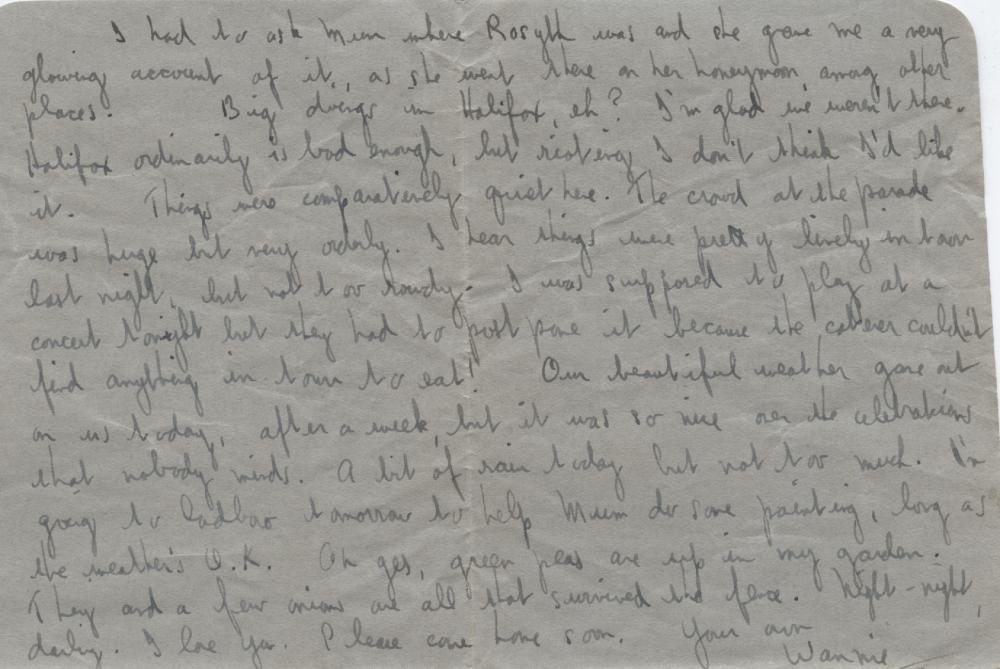 I had to ask Mum where Rosyth was and she gave me a very
glowing account of it, as she went there on her honeymoon, among other
places. Big doings in Halifax, eh? I'm glad we weren't there.
Halifax ordinarily is bad enough, but rioting I don't think I'd like
it. Things were comparatively quiet here. The crowd at the parade
was huge but very orderly. I hear things were pretty lively in town
last night, but not too rowdy. I was supposed to play at a
concert tonight but they had to postpone it because the caterer couldn't
find anything in town to eat! Our beautiful weather gave out
on us today, after a week, but it was so nice over the celebrations
that nobody minds. A bit of rain today but not too much. I'm
going to tomorrow to help Mum do some painting, long as
the weather's O.K. Oh yes, green peas are up in my garden.
They and a few onions are all that survived the fence. Night-night,
darling. I love you. Please come home soon. Your own
Wannie